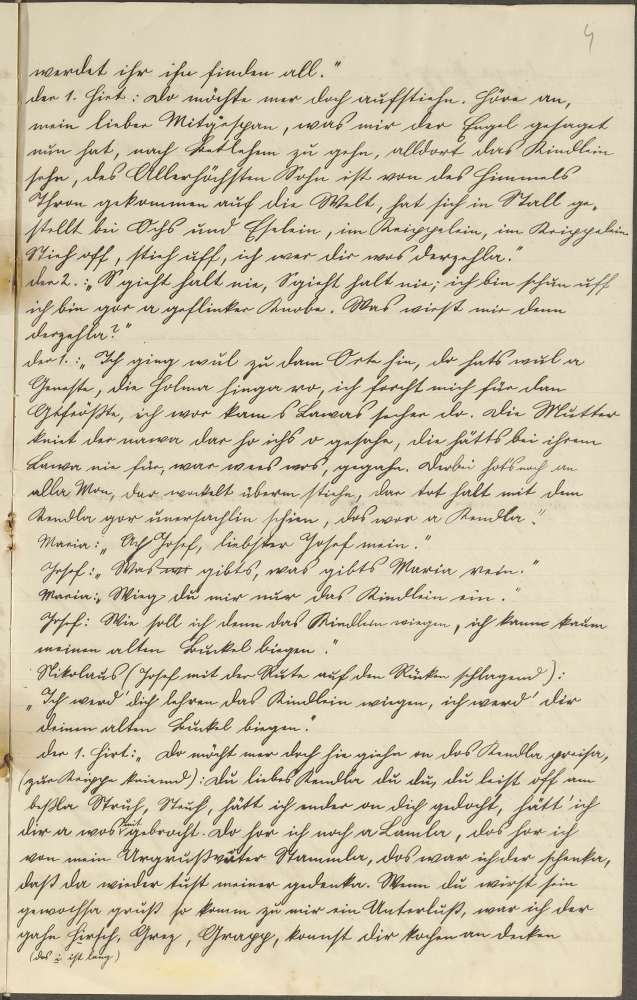 4
werdet ihr ihn finden all."
der 1. Hirt: Do möchte mer doch aufstiehn. Höre an,
mein lieber Mitgespan, was mir der Engel gesaget
nun hat, nach Betlehem zu gehn, alldort das Kindlein
sehn, des Allerhöchsten Sohn ist von des Himmels
Thron gekommen auf die Welt, hat sich in Stall ge-
stellt bei Ochs und Eselein, im Krippelein, im Krippelein.
Stieh off, stieh uff, ich wer dir wos derzehla."
der 2.: "S gieht halt nie, S gieht halt nie; ich bin schun uff
ich bin gor a geflinker Knobe. Was wirst mir denn
derzehla?"
der 1.: "Ich ging wul zu dam Orte hin, do hats wul a
Geneste, die Holma hinga ro, ich forcht mich für dan
ich wor kam s Lawas secher do. Die Mutter
kniet der nawa dar ho ichs o gesahn, die hätts bei ihrem
Lawa nie für, war wees wos, gegahn. Derbei hots noch an
alla Mon, dar wockelt überm stiehn, dar tot halt mit dem
Kendla gor unersachlin schien, dos wor a Kendla."
Maria: "Ach Josef, liebster Josef mein."
Josef: "Was gibts, was gibts Maria rein."
Maria: "Wieg du mir nur das Kindlein ein."
Josef: Wie soll ich denn das Kindlein wiegen, ich kann kaum
meinen alten Buckel biegen."
Nikolaus (Josef mit der Rute auf den Rücken schlagend):
"Ich werd' dich lehren das Kindlein wiegen, ich werd' dir
deinen alten Buckel biegen."
der 1. Hirt: "Do möcht mer doch hie giehn on dos Kendla preisa,
(zur Krippe kniend): Du liebes Kendla du du, du leist off am
beßla Struh, Struh, hätt ich ender on dich gedocht, hätt' ich
dir a wos mit gebrocht. Do hor ich noch a Lamla, dos hor ich
von mein Urgrußväter Stammla, dos war ich der schenka,
daß da wieder tust meiner gedenka. Wenn du wirst sein
gewochsa gruß so komm zu mir ein Unterluß, war ich der
gahn Hirsch, Grez, Grapp, konnst dir kochen an decken
(das i ist lang)